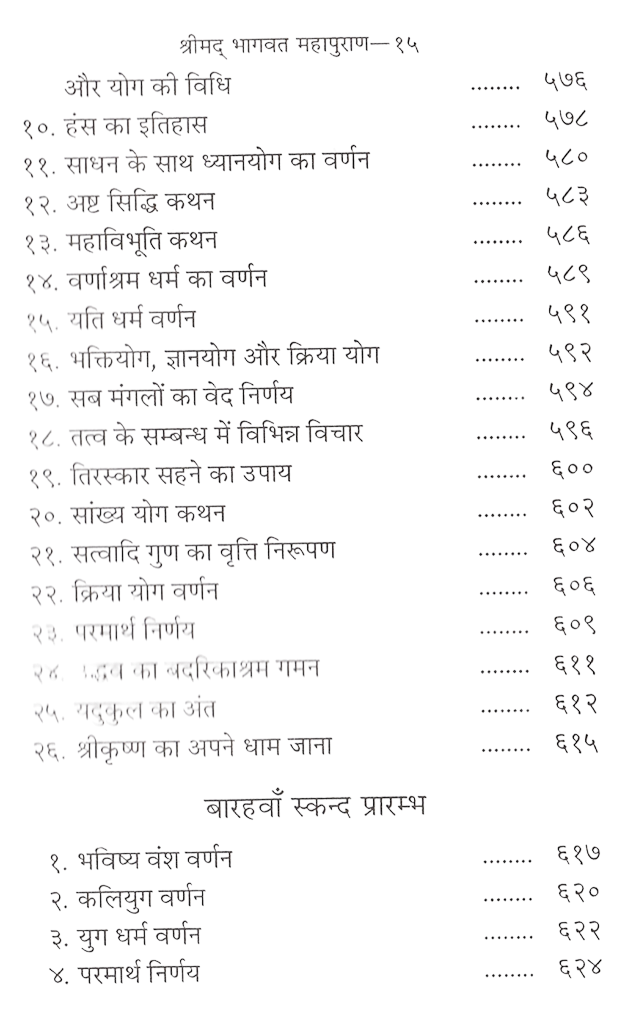 श्रीमद् भागवत महापुराण—१५
और योग की विधि ........ ५७६
१०. हंस का इतिहास ........ ५७८
११. साधन के साथ ध्यानयोग का वर्णन ........ ५८०
१२. अष्ट सिद्धि कथन ........ ५८३
१३. महाविभूति कथन ........ ५८६
१४. वर्णाश्रम धर्म का वर्णन ........ ५८९
१५. यति धर्म वर्णन ........ ५९१
१६. भक्तियोग, ज्ञानयोग और क्रिया योग ........ ५९२
१७. सब मंगलों का वेद निर्णय ........ ५९४
१८. तत्व के सम्बन्ध में विभिन्न विचार ........ ५९६
१९. तिरस्कार सहने का उपाय ........ ६००
२०. सांख्य योग कथन ........ ६०२
२१. सत्वादि गुण का वृत्ति निरूपण ........ ६०४
२२. क्रिया योग वर्णन ........ ६०६
२३. परमार्थ निर्णय ........ ६०९
२४. का बदरिकाश्रम गमन ........ ६११
२५. यदुकुल का अंत ........ ६१२
२६. श्रीकृष्ण का अपने धाम जाना ........ ६१५
बारहवाँ स्कन्द प्रारम्भ
१. भविष्य वंश वर्णन ........ ६१७
२. कलियुग वर्णन ........ ६२०
३. युग धर्म वर्णन ........ ६२२
४. परमार्थ निर्णय ........ ६२४